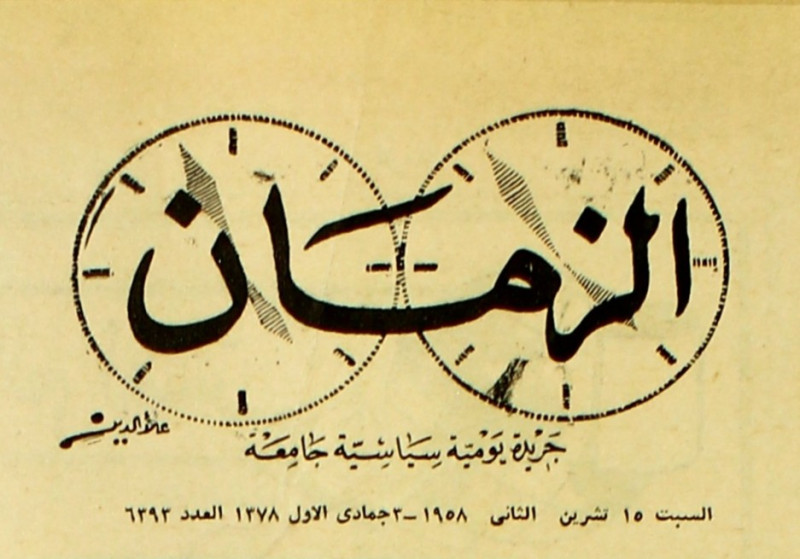 الزمان
علاء الدين
جريدة يومية سياسية جامعة
السبت ١٥ تشرين الثانى ١٩٥٨ – ٣ جمادى الاول ١٣٧٨ العدد ٦٣٩٣